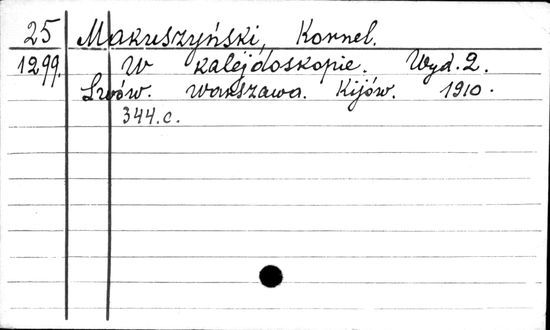 25 Makuszyński, Kornel.
1299. W kalejdoskopie. Wyd. 2.
Lwów. Warszawa. Kijów. 1910.
344.c.